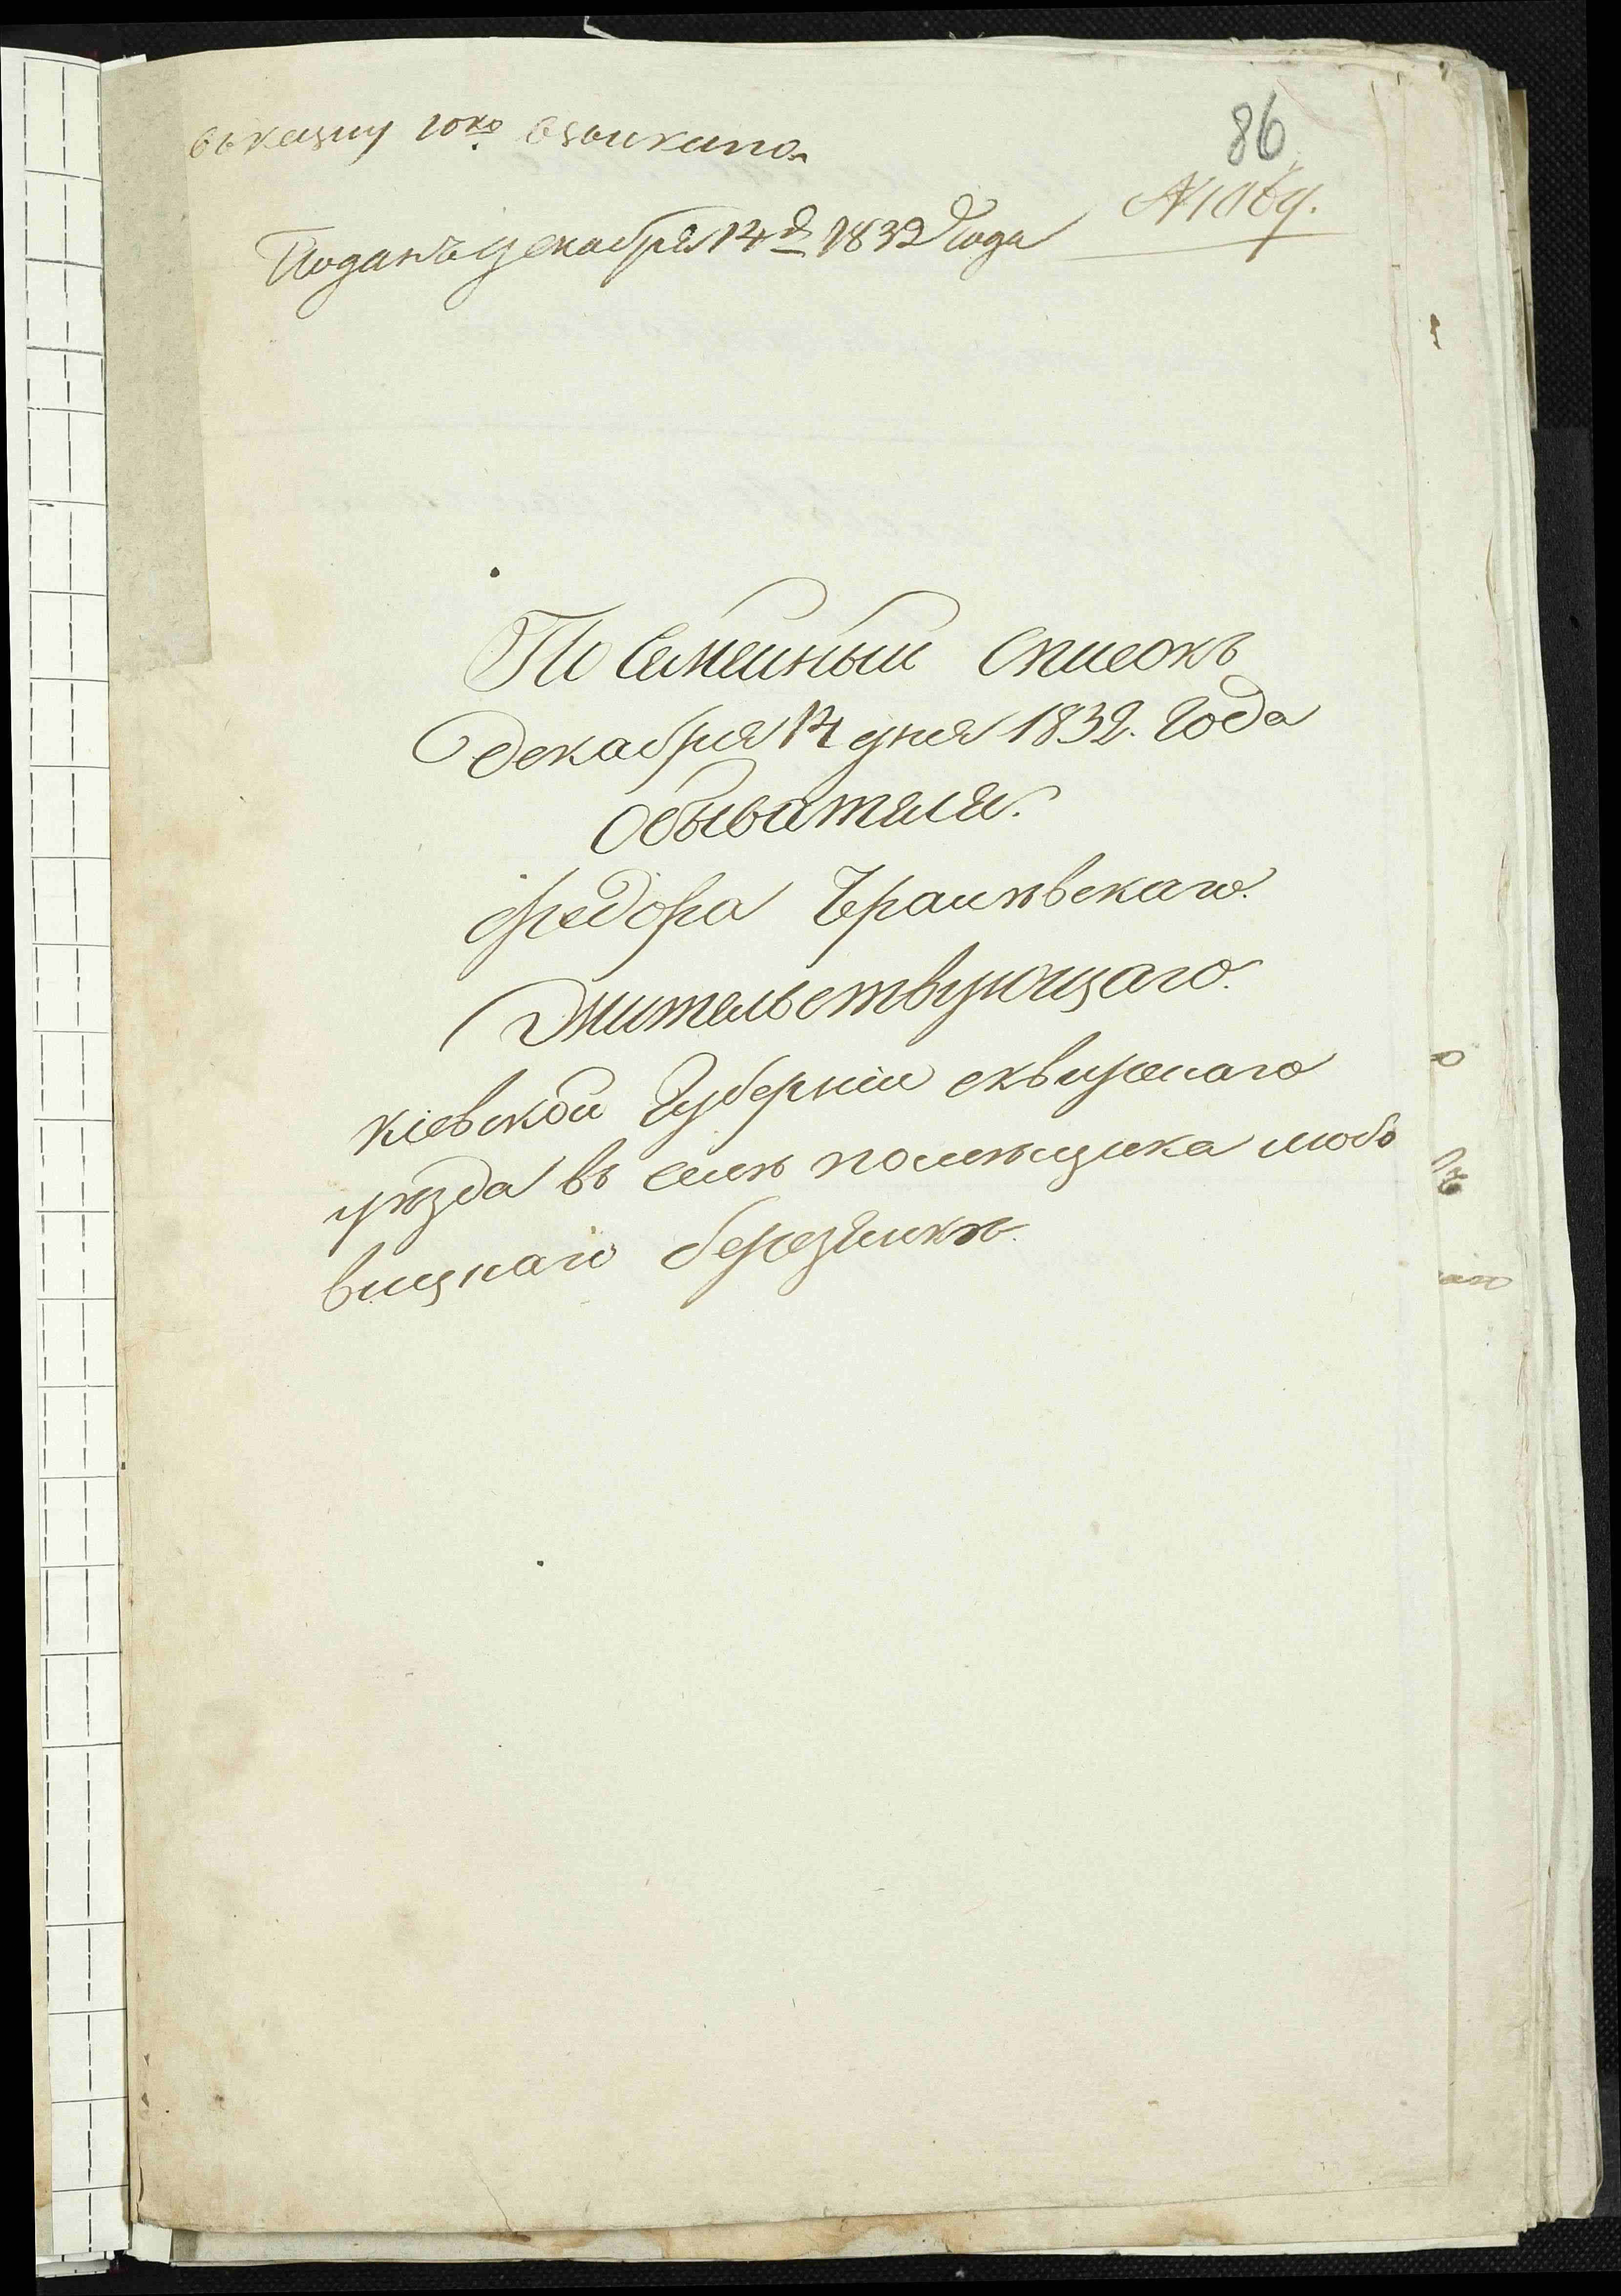 въ казну 10ко взыскано
86
№ 1069.
Поданъ декабря 14 д 1832 года
По Семейный Списокъ
декабря 14 дня 1832. Года
Обывателя.
Федора
Жительствующаго.
Кіевской Губерніи сквирскаго
уѣзда въ селѣ помѣщика любо
вицкаго березянкѣ.